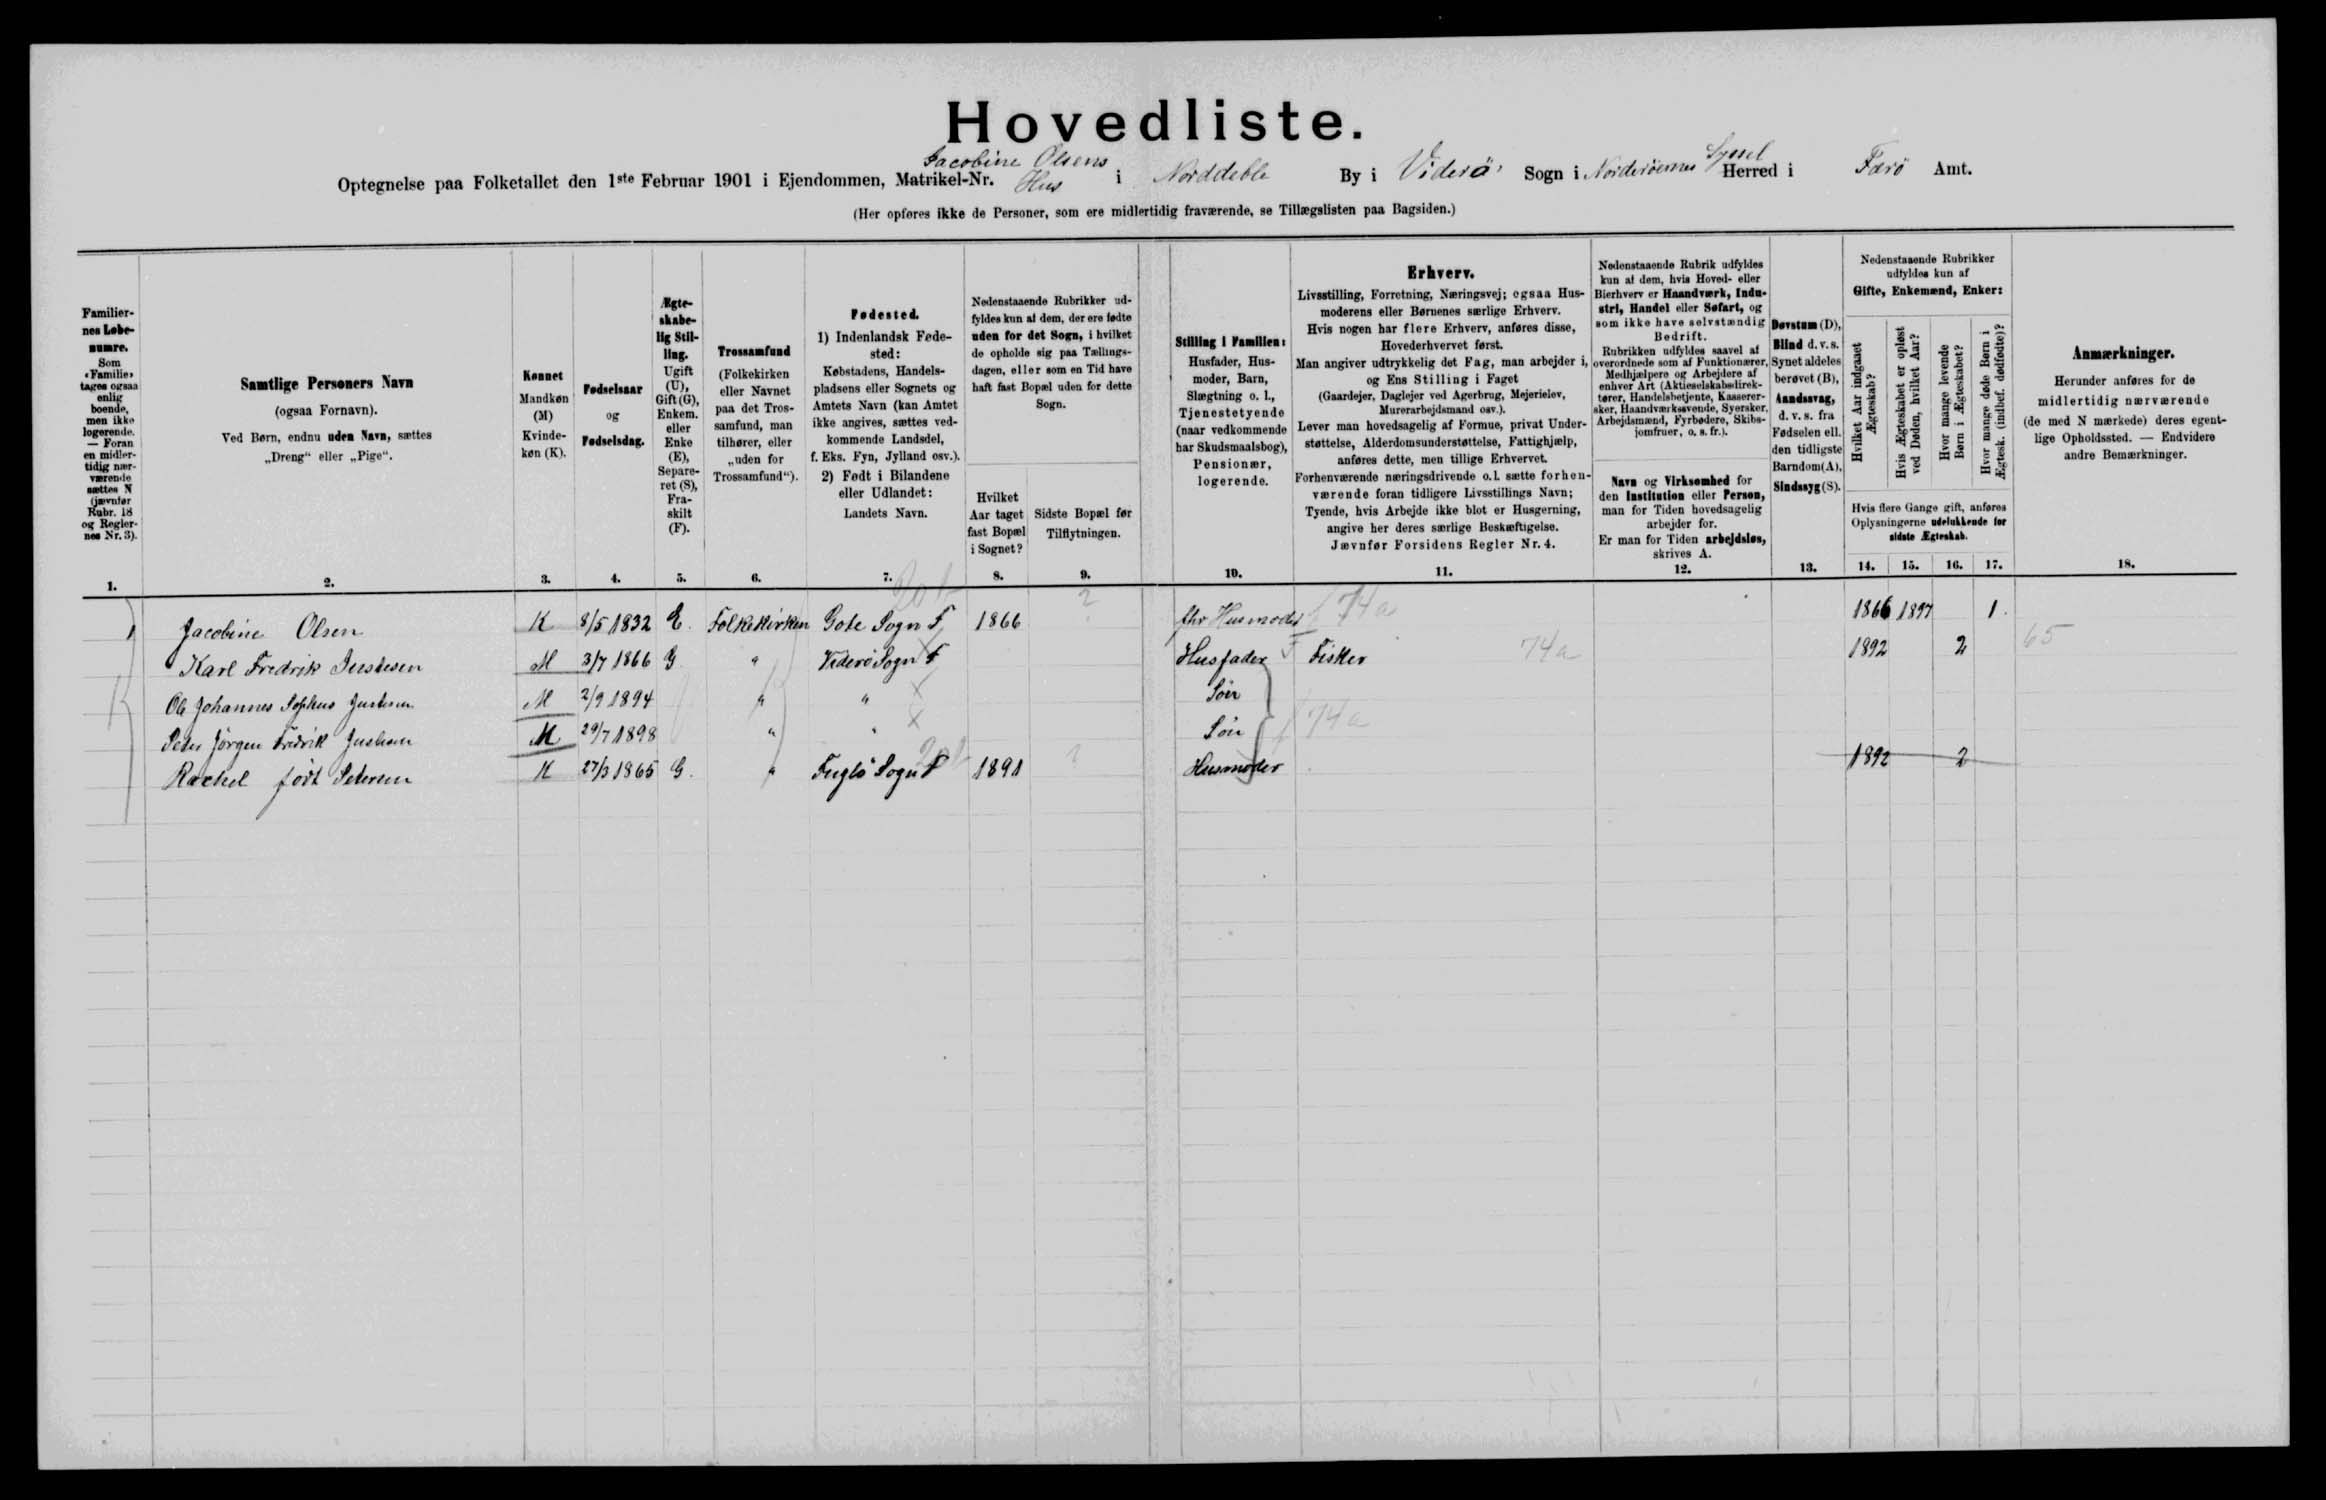 Hovedliste.
Jacobine Olsens Syssel
Optegnelse paa Folketallet den 1ste Februar 1901 i Ejendommen, Matrikel-Nr. Hus i Norddeble By i Viderö Sogn i Norderöernes Herred i Færö Amt.
(Her opføres ikke de Personer, som ere midlertidig fraværende, se Tillægslisten paa Bagsiden.)
Familier-
nes Løbe-
numre.
Som
«Familie»
tages ogsaa
enlig
boende,
men ikke
logerende.
— Foran
en midler-
tidig nær-
værende
sættes N
(jævnfør
Rubr. 18
og Regler-
nes Nr. 3).
1.
Samtlige Personers Navn
(ogsaa Fornavn).
Ved Børn, endnu uden Navn, sættes
„Dreng“ eller „Pige“.
2.
Kønnet
Mandkøn
(M)
Kvinde-
køn (K).
3.
Fødselsaar
og
Fødselsdag.
4.
Ægte-
skabe-
lig Stil-
ling.
Ugift
(U),
Gift (G),
Enkem.
eller
Enke
(E),
Separe-
ret (S),
Fra-
skilt
(F).
5.
Trossamfund
(Folkekirken
eller Navnet
paa det Tros-
samfund, man
tilhører, eller
„uden for
Trossamfund“).
6.
Fødested.
1) Indenlandsk Føde-
sted:
Købstadens, Handels-
pladsens eller Sognets og
Amtets Navn (kan Amtet
ikke angives, sættes ved-
kommende Landsdel,
f. Eks. Fyn, Jylland osv.).
2) Født i Bilandene
eller Udlandet:
Landets Navn.
7.
Nedenstaaende Rubrikker ud-
fyldes kun af dem, der ere fødte
uden for det Sogn, i hvilket
de opholde sig paa Tællings-
dagen, eller som en Tid have
haft fast Bopæl uden for dette
Sogn.
Hvilket
Aar taget
fast Bopæl
i Sognet?
8.
Sidste Bopæl før
Tilflytningen.
9.
Stilling i Familien:
Husfader, Hus-
moder, Barn,
Slægtning o. l.,
Tjenestetyende
(naar vedkommende
har Skudsmaalsbog),
Pensionær,
logerende.
10.
Erhverv.
Livsstilling, Forretning, Næringsvej; ogsaa Hus-
moderens eller Børnenes særlige Erhverv.
Hvis nogen har flere Erhverv, anføres disse,
Hovederhvervet først.
Man angiver udtrykkelig det Fag, man arbejder i,
og Ens Stilling i Faget
(Gaardejer, Daglejer ved Agerbrug, Mejerielev,
Murerarbejdsmand osv.).
Lever man hovedsagelig af Formue, privat Under-
støttelse, Alderdomsunderstøttelse, Fattighjælp,
anføres dette, men tillige Erhvervet.
Forhenværende næringsdrivende o. l. sætte forhen-
værende foran tidligere Livsstillings Navn;
Tyende, hvis Arbejde ikke blot er Husgerning,
angive her deres særlige Beskæftigelse.
Jævnfør Forsidens Regler Nr. 4.
11.
Nedenstaaende Rubrik udfyldes
kun af dem, hvis Hoved- eller
Bierhverv er Haandværk, Indu-
stri, Handel eller Søfart, og
som ikke have selvstændig
Bedrift.
Rubrikken udfyldes saavel af
overordnede som af Funktionærer,
Medhjælpere og Arbejdere af
enhver Art (Aktieselskabsdirek-
tører, Handelsbetjente, Kasserer-
sker, Haandværkssvende, Syersker,
Arbejdsmænd, Fyrbødere, Skibs-
jomfruer, o. s. fr.).
Navn og Virksomhed for
den Institution eller Person,
man for Tiden hovedsagelig
arbejder for.
Er man for Tiden arbejdsløs,
skrives A.
12.
Døvstum (D),
Blind d. v. s.
Synet aldeles
berøvet (B),
Aandssvag,
d. v. s. fra
Fødselen ell.
den tidligste
Barndom (A),
Sindssyg (S).
13.
Nedenstaaende Rubrikker
udfyldes kun af
Gifte, Enkemænd, Enker:
Hvilket Aar indgaaet
Ægteskab?
Hvis Ægteskabet er opløst
ved Døden, hvilket Aar?
Hvor mange levende
Børn i Ægteskabet?
Hvor mange døde Børn i
Ægtesk. (indbef. dødfødte)?
Hvis flere Gange gift, anføres
Oplysningerne udelukkende for
sidste Ægteskab.
14. 15. 16. 17.
Anmærkninger.
Herunder anføres for de
midlertidig nærværende
(de med N mærkede) deres egent-
lige Opholdssted. — Endvidere
andre Bemærkninger.
18.
1 Jacobine Olsen K 8/5 1832 E. Folkekirken Gote Sogn F 1866 ? fhv Husmoder 74a 1866 1897 1.
Karl Fredrik Justesen M 3/7 1866 G " Viderö Sogn F Husfader F Fisker 74a 1892 2 65
Ole Johannes Sophus Justesen M 2/9 1894 " " Sön
Peter Jörgen Fredrik Justesen M 29/7 1898 " " Sön 74a
Rachel födt Petersen K 27/3 1865 G. " Fuglö Sogn F 1891 ? Husmoder 1892 2